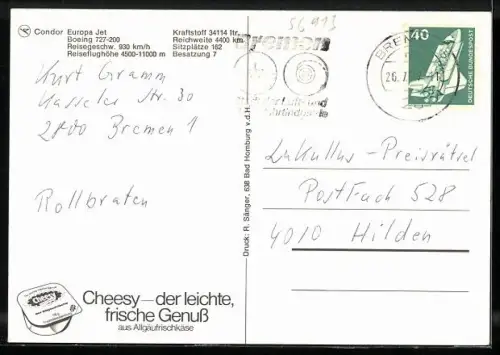 Condor Europa Jet
Boeing 727-200
Reisegeschw. 930 km/h
Reiseflughöhe 4500-11000 m
Kraftstoff 34114 ltr.
Reichweite 4400 km
Sitzplätze 162
Besatzung 7
Kurt Gramm
Kasseler Str. 30
2800 Bremen 1
Rollbraten
Cheesy
Cheesy—der leichte,
frische Genuß
aus Allgäufrischkäse
Druck: R. Sänger, 638 Bad Homburg v.d.H.
56913
Bremen
40
DEUTSCHE BUNDESPOST
BREM
26.7.
Lukullus-Preisrätsel
Postfach 528
4010 Hilden